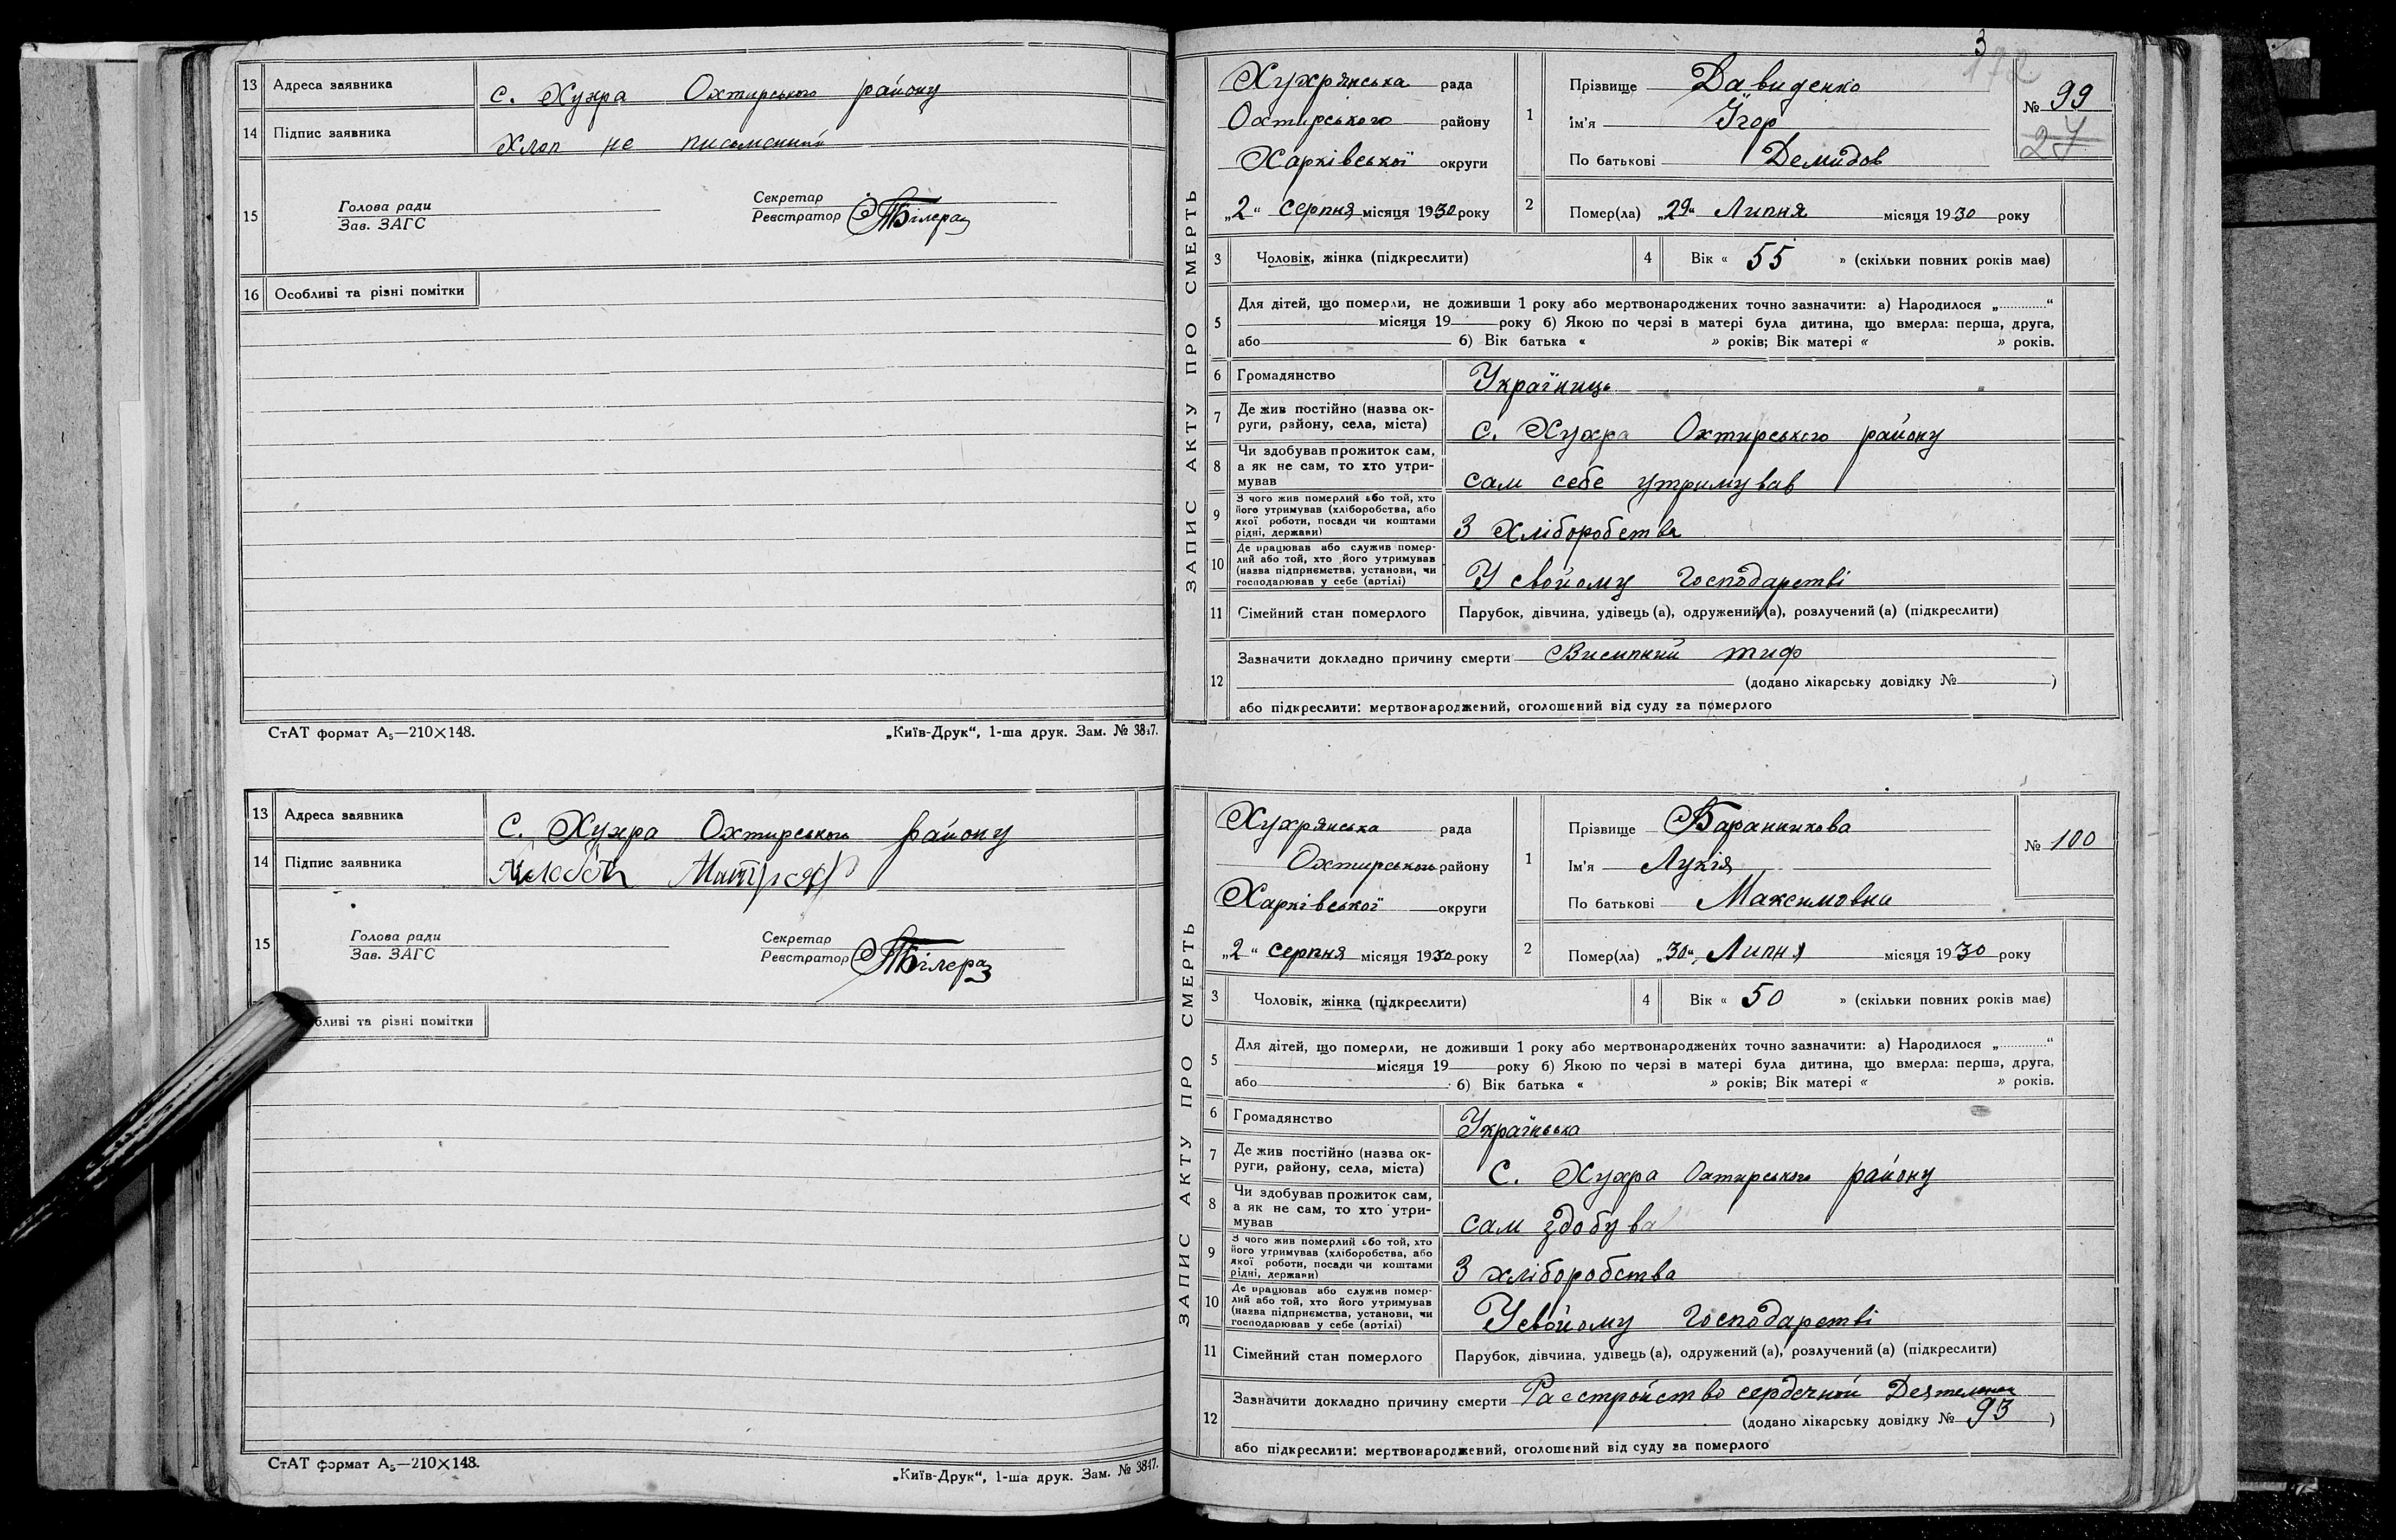 13 Адреса заявника с. Хухра Охтирського району
14 Підпис заявника Хлоп не письменний
15 Голова ради
Зав. ЗАГС
Секретар
Реєстратор
16 Особливі та різні помітки
СтАТ формат А₅—210×148.
„Київ-Друк“, 1-ша друк. Зам. № 3847.
13 Адреса заявника С. Хухра Охтирського району
14 Підпис заявника
15 Голова ради
Зав. ЗАГС
Секретар
Реєстратор
бливі та різні помітки
СтАТ формат А₅—210×148.
„Київ-Друк“, 1-ша друк. Зам. № 3847.
3
172
ЗАПИС АКТУ ПРО СМЕРТЬ
Хухрянська рада
Охтирського району
Харківської округи
„2“ серпня місяця 1930 року
1 Прізвище Давиденко
Ім'я Ігор
По батькові Демидов
№ 99
27
2 Помер(ла) „29“ Липня місяця 1930 року
3 Чоловік, жінка (підкреслити)
4 Вік « 55 » (скільки повних років має)
5 Для дітей, що померли, не доживши 1 року або мертвонароджених точно зазначити: а) Народилося „..........“
місяця 19 року б) Якою по черзі в матері була дитина, що вмерла: перша, друга,
або б) Вік батька « » років; Вік матері « » років.
6 Громадянство Україниць
7 Де жив постійно (назва ок-
руги, району, села, міста) С. Хухра Охтирського району
8 Чи здобував прожиток сам,
а як не сам, то хто утри-
мував сам себе утримував
9 З чого жив померлий або той, хто
його утримував (хліборобства, або
якої роботи, посади чи коштами
рідні, держави) З Хліборобства
10 Де працював або служив помер-
лий або той, хто його утримував
(назва підприємства, установи, чи
господарював у себе (артілі) У свойому господарстві
11 Сімейний стан померлого Парубок, дівчина, удівець (а), одружений (а), розлучений (а) (підкреслити)
12 Зазначити докладно причину смерти Висипний тиф
(додано лікарську довідку № )
або підкреслити: мертвонароджений, оголошений від суду за померлого
ЗАПИС АКТУ ПРО СМЕРТЬ
Хухрянська рада
Охтирського району
Харківської округи
„2“ серпня місяця 1930 року
1 Прізвище Баранникова
Ім'я Лукія
По батькові Максимовна
№ 100
2 Помер(ла) „30“ Липня місяця 1930 року
3 Чоловік, жінка (підкреслити)
4 Вік « 50 » (скільки повних років має)
5 Для дітей, що померли, не доживши 1 року або мертвонароджених точно зазначити: а) Народилося „..........“
місяця 19 року б) Якою по черзі в матері була дитина, що вмерла: перша, друга,
або б) Вік батька « » років; Вік матері « » років.
6 Громадянство Українька
7 Де жив постійно (назва ок-
руги, району, села, міста) С. Хухра Охтирського району
8 Чи здобував прожиток сам,
а як не сам, то хто утри-
мував сам здобува
9 З чого жив померлий або той, хто
його утримував (хліборобства, або
якої роботи, посади чи коштами
рідні, держави) З хліборобства
10 Де працював або служив помер-
лий або той, хто його утримував
(назва підприємства, установи, чи
господарював у себе (артілі) У свойому господарстві
11 Сімейний стан померлого Парубок, дівчина, удівець (а), одружений (а), розлучений (а) (підкреслити)
12 Зазначити докладно причину смерти Расстройство сердечной
(додано лікарську довідку № 93 )
або підкреслити: мертвонароджений, оголошений від суду за померлого